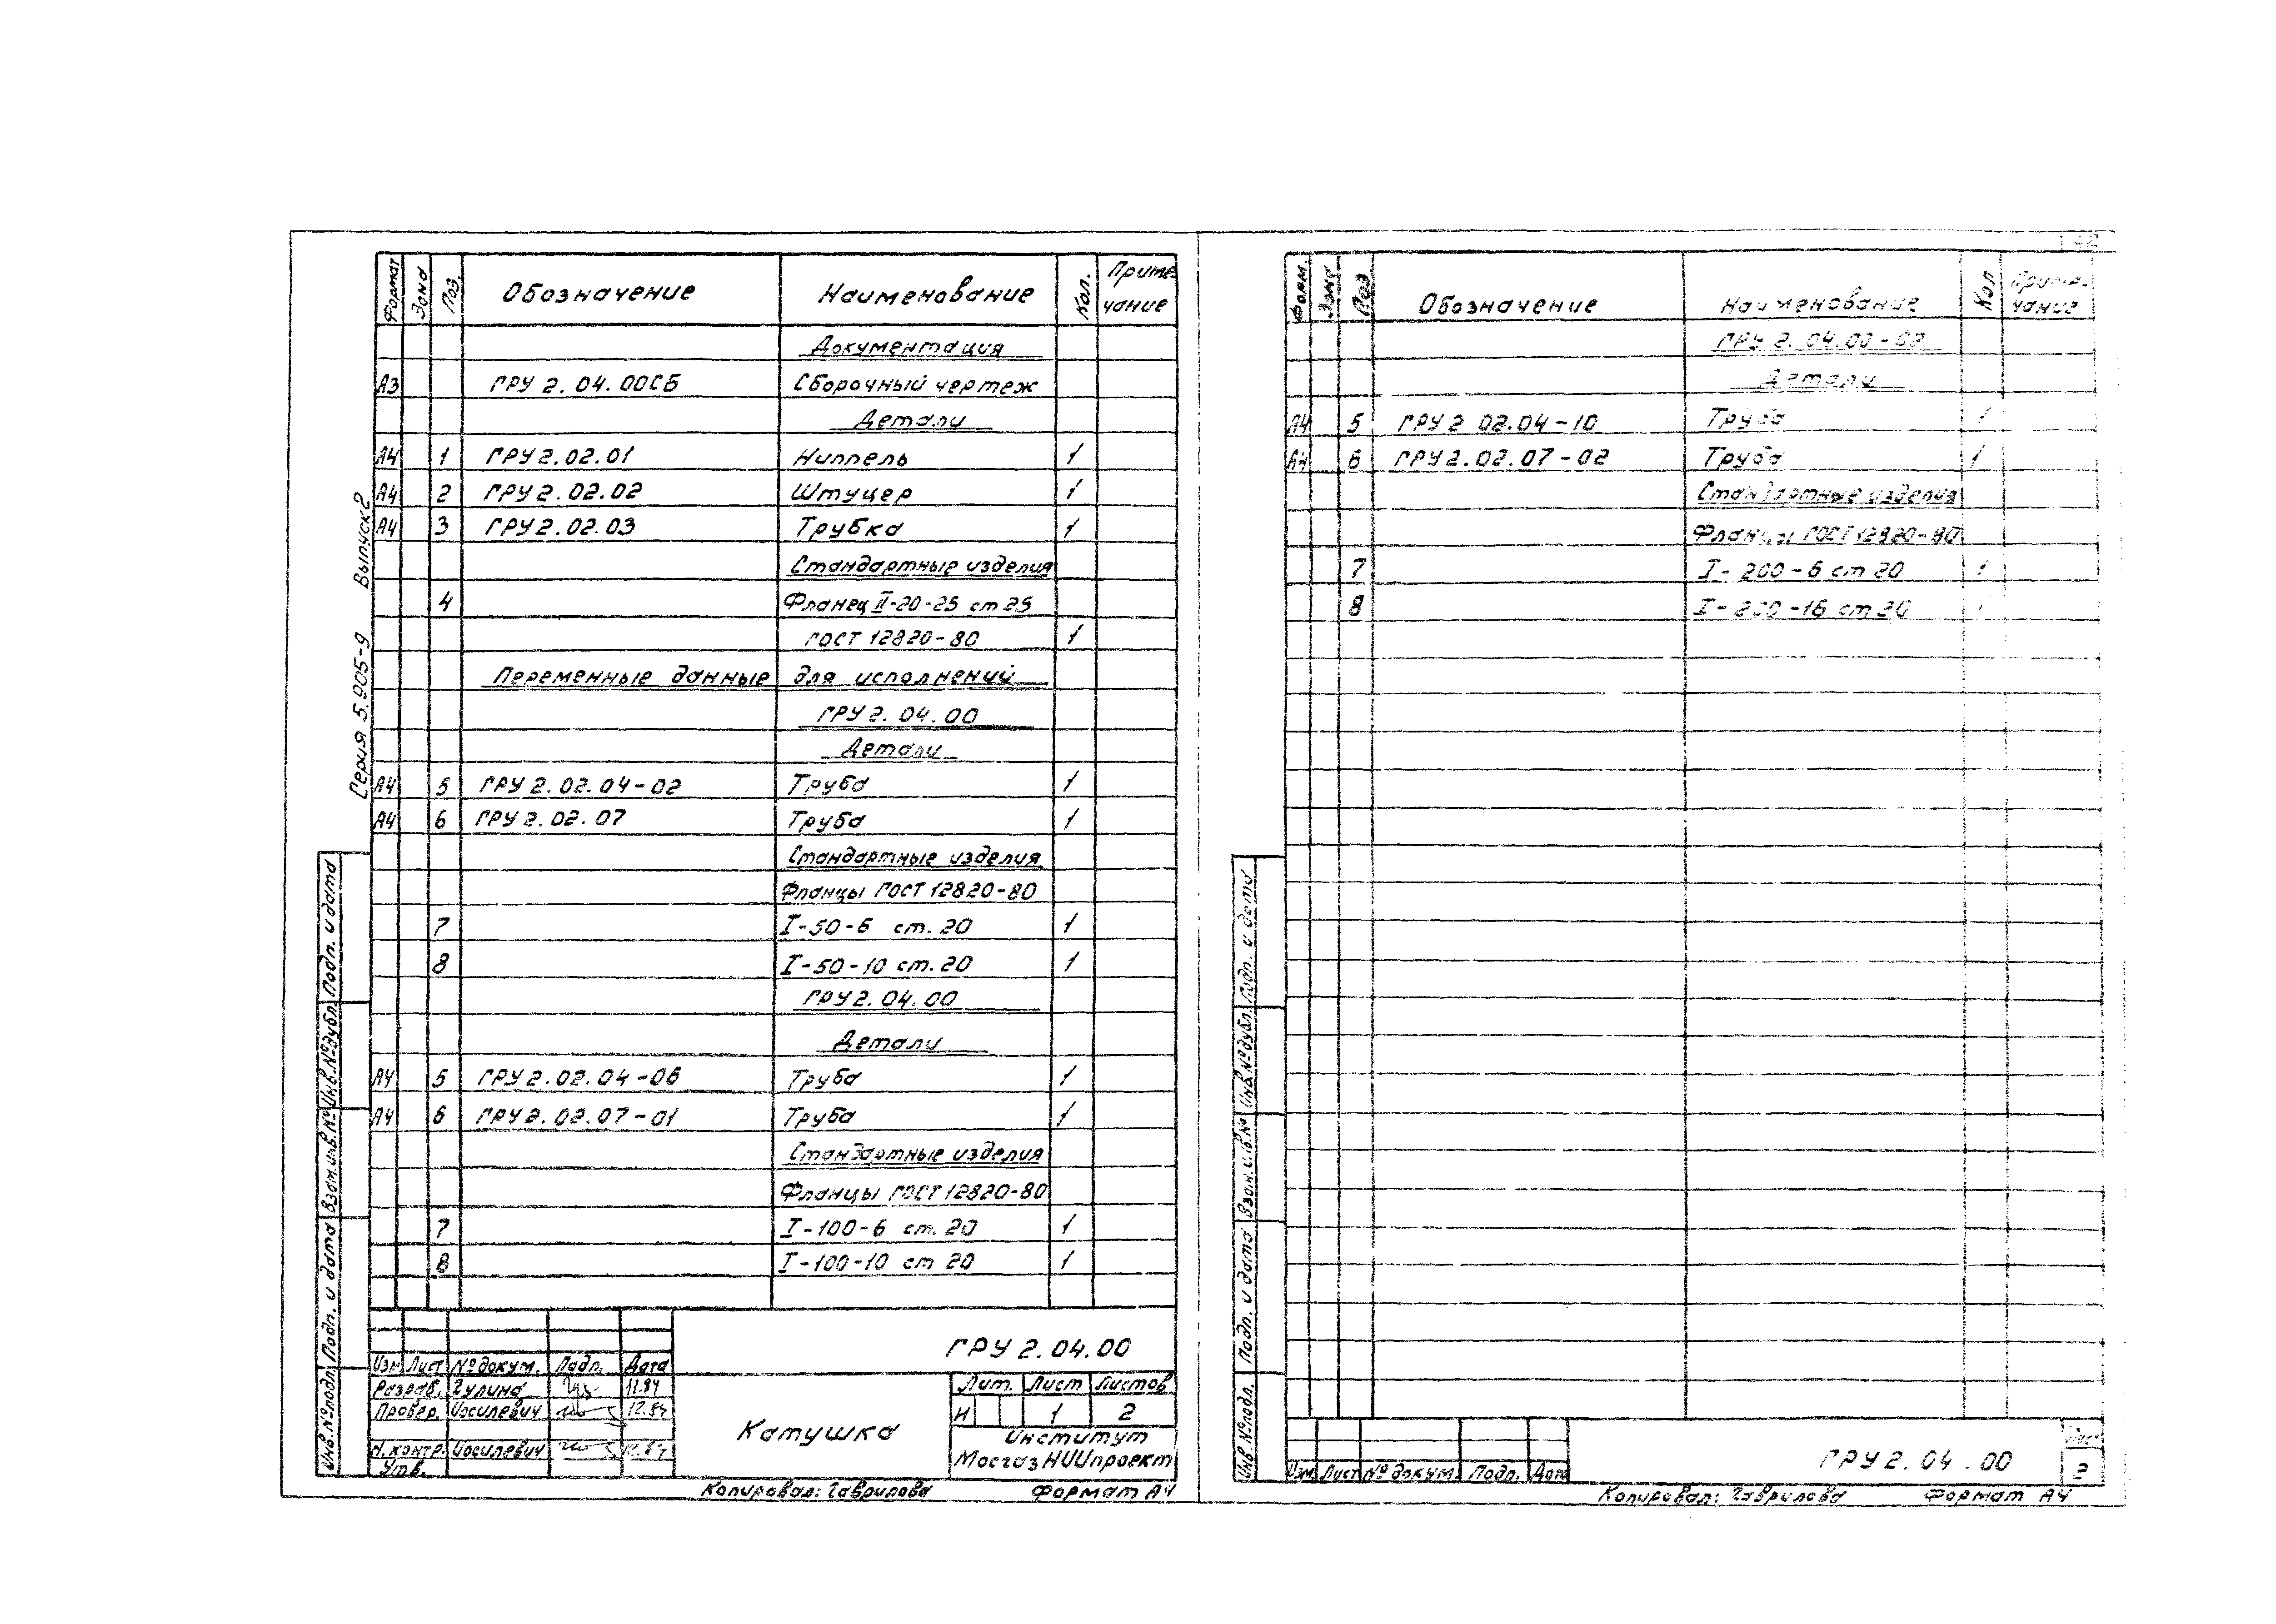 Серия 5.905-9 Выпуск 2
Формат Зона Поз. Обозначение Наименование Кол. Приме-чание
Документация
А3 ГРУ 2.04.00СБ Сборочный чертеж
Детали
А4 1 ГРУ 2.02.01 Ниппель 1
А4 2 ГРУ 2.02.02 Штуцер 1
А4 3 ГРУ 2.02.03 Трубка 1
Стандартные изделия
4 Фланец II-20-25 ст 25
ГОСТ 12820-80 1
Переменные данные для исполнений
ГРУ 2.04.00
Детали
А4 5 ГРУ 2.02.04-02 Труба 1
А4 6 ГРУ 2.02.07 Труба 1
Стандартные изделия
Фланцы ГОСТ 12820-80
7 I-50-6 ст. 20 1
8 I-50-10 ст. 20 1
ГРУ 2.04.00
Детали
А4 5 ГРУ 2.02.04-06 Труба 1
А4 6 ГРУ 2.02.07-01 Труба 1
Стандартные изделия
Фланцы ГОСТ 12820-80
7 I-100-6 ст. 20 1
8 I-100-10 ст 20 1
Инв.№ подл. Подп. и дата Взам.инв.№ Инв.№ дубл. Подп. и дата
ГРУ 2.04.00
Изм Лист № докум. Подп. Дата
Разраб. Гулина 11.84
Провер. Иосилевич 12.84
Н.контр. Иосилевич
Утв.
Катушка
Лит. Лист Листов
И 1 2
Институт
МосгазНИИпроект
Копировал: Гаврилова Формат А4
Форм. Зона Поз Обозначение Наименование Кол Приме-чание
ГРУ 2.04.00-02
Детали
А4 5 ГРУ 2 02.04-10 Труба 1
А4 6 ГРУ 2.02.07-02 Труба 1
Стандартные изделия
Фланцы ГОСТ 12820-80
7 I-200-6 ст 20 1
8 I-200-16 ст 20 1
Инв.№ подл. Подп. и дата Взам.инв.№ Инв.№ дубл. Подп. и дата
Изм Лист № докум. Подп. Дата
ГРУ 2.04.00
Лист
2
Копировал: Гаврилова Формат А4